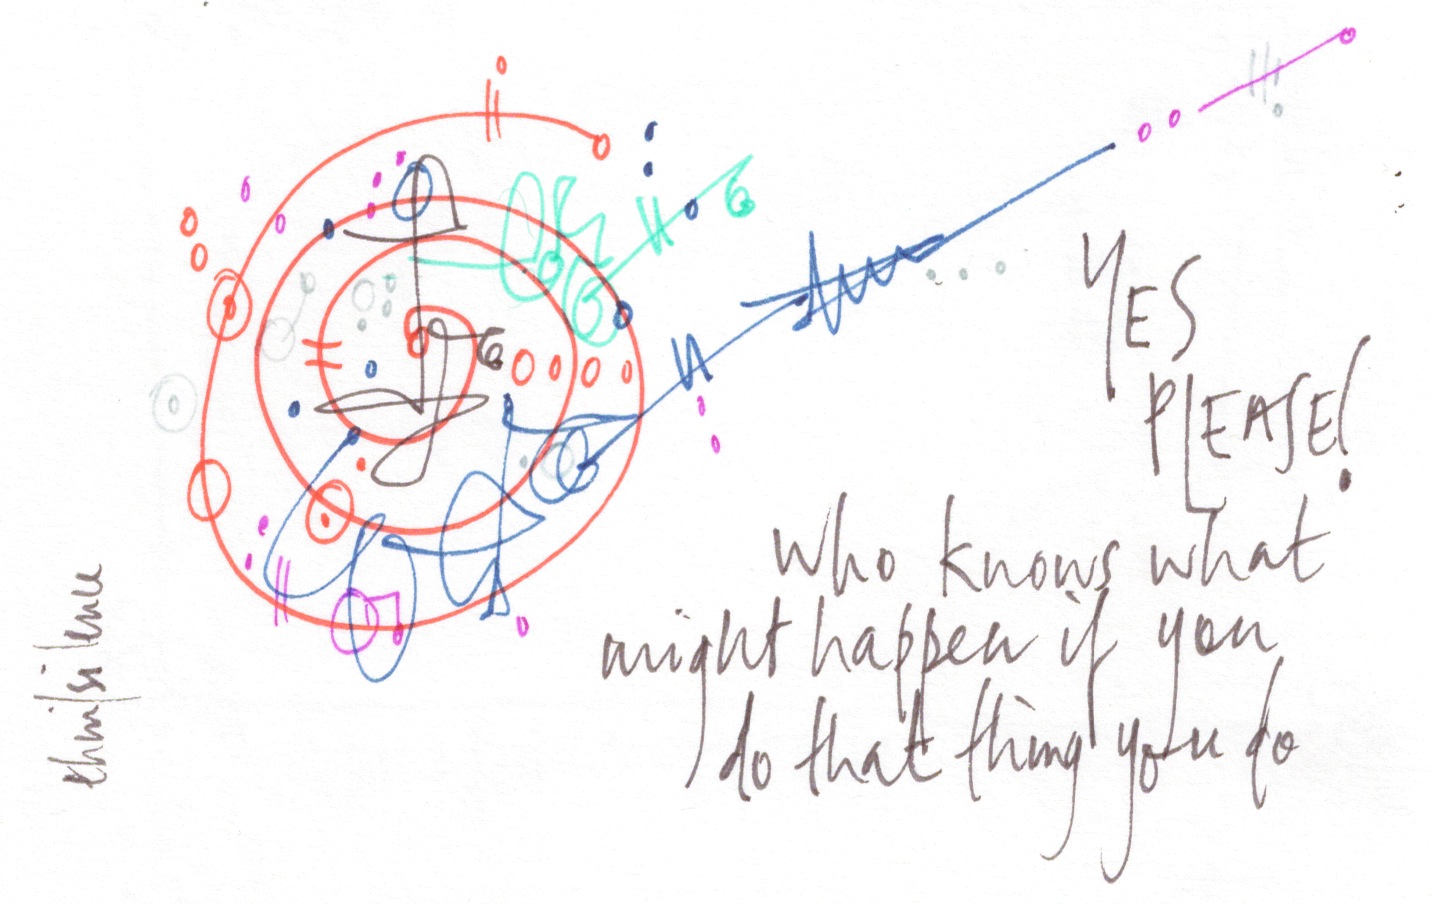 YES
PLEASE!
who knows what
might happen if you
do that thing you do